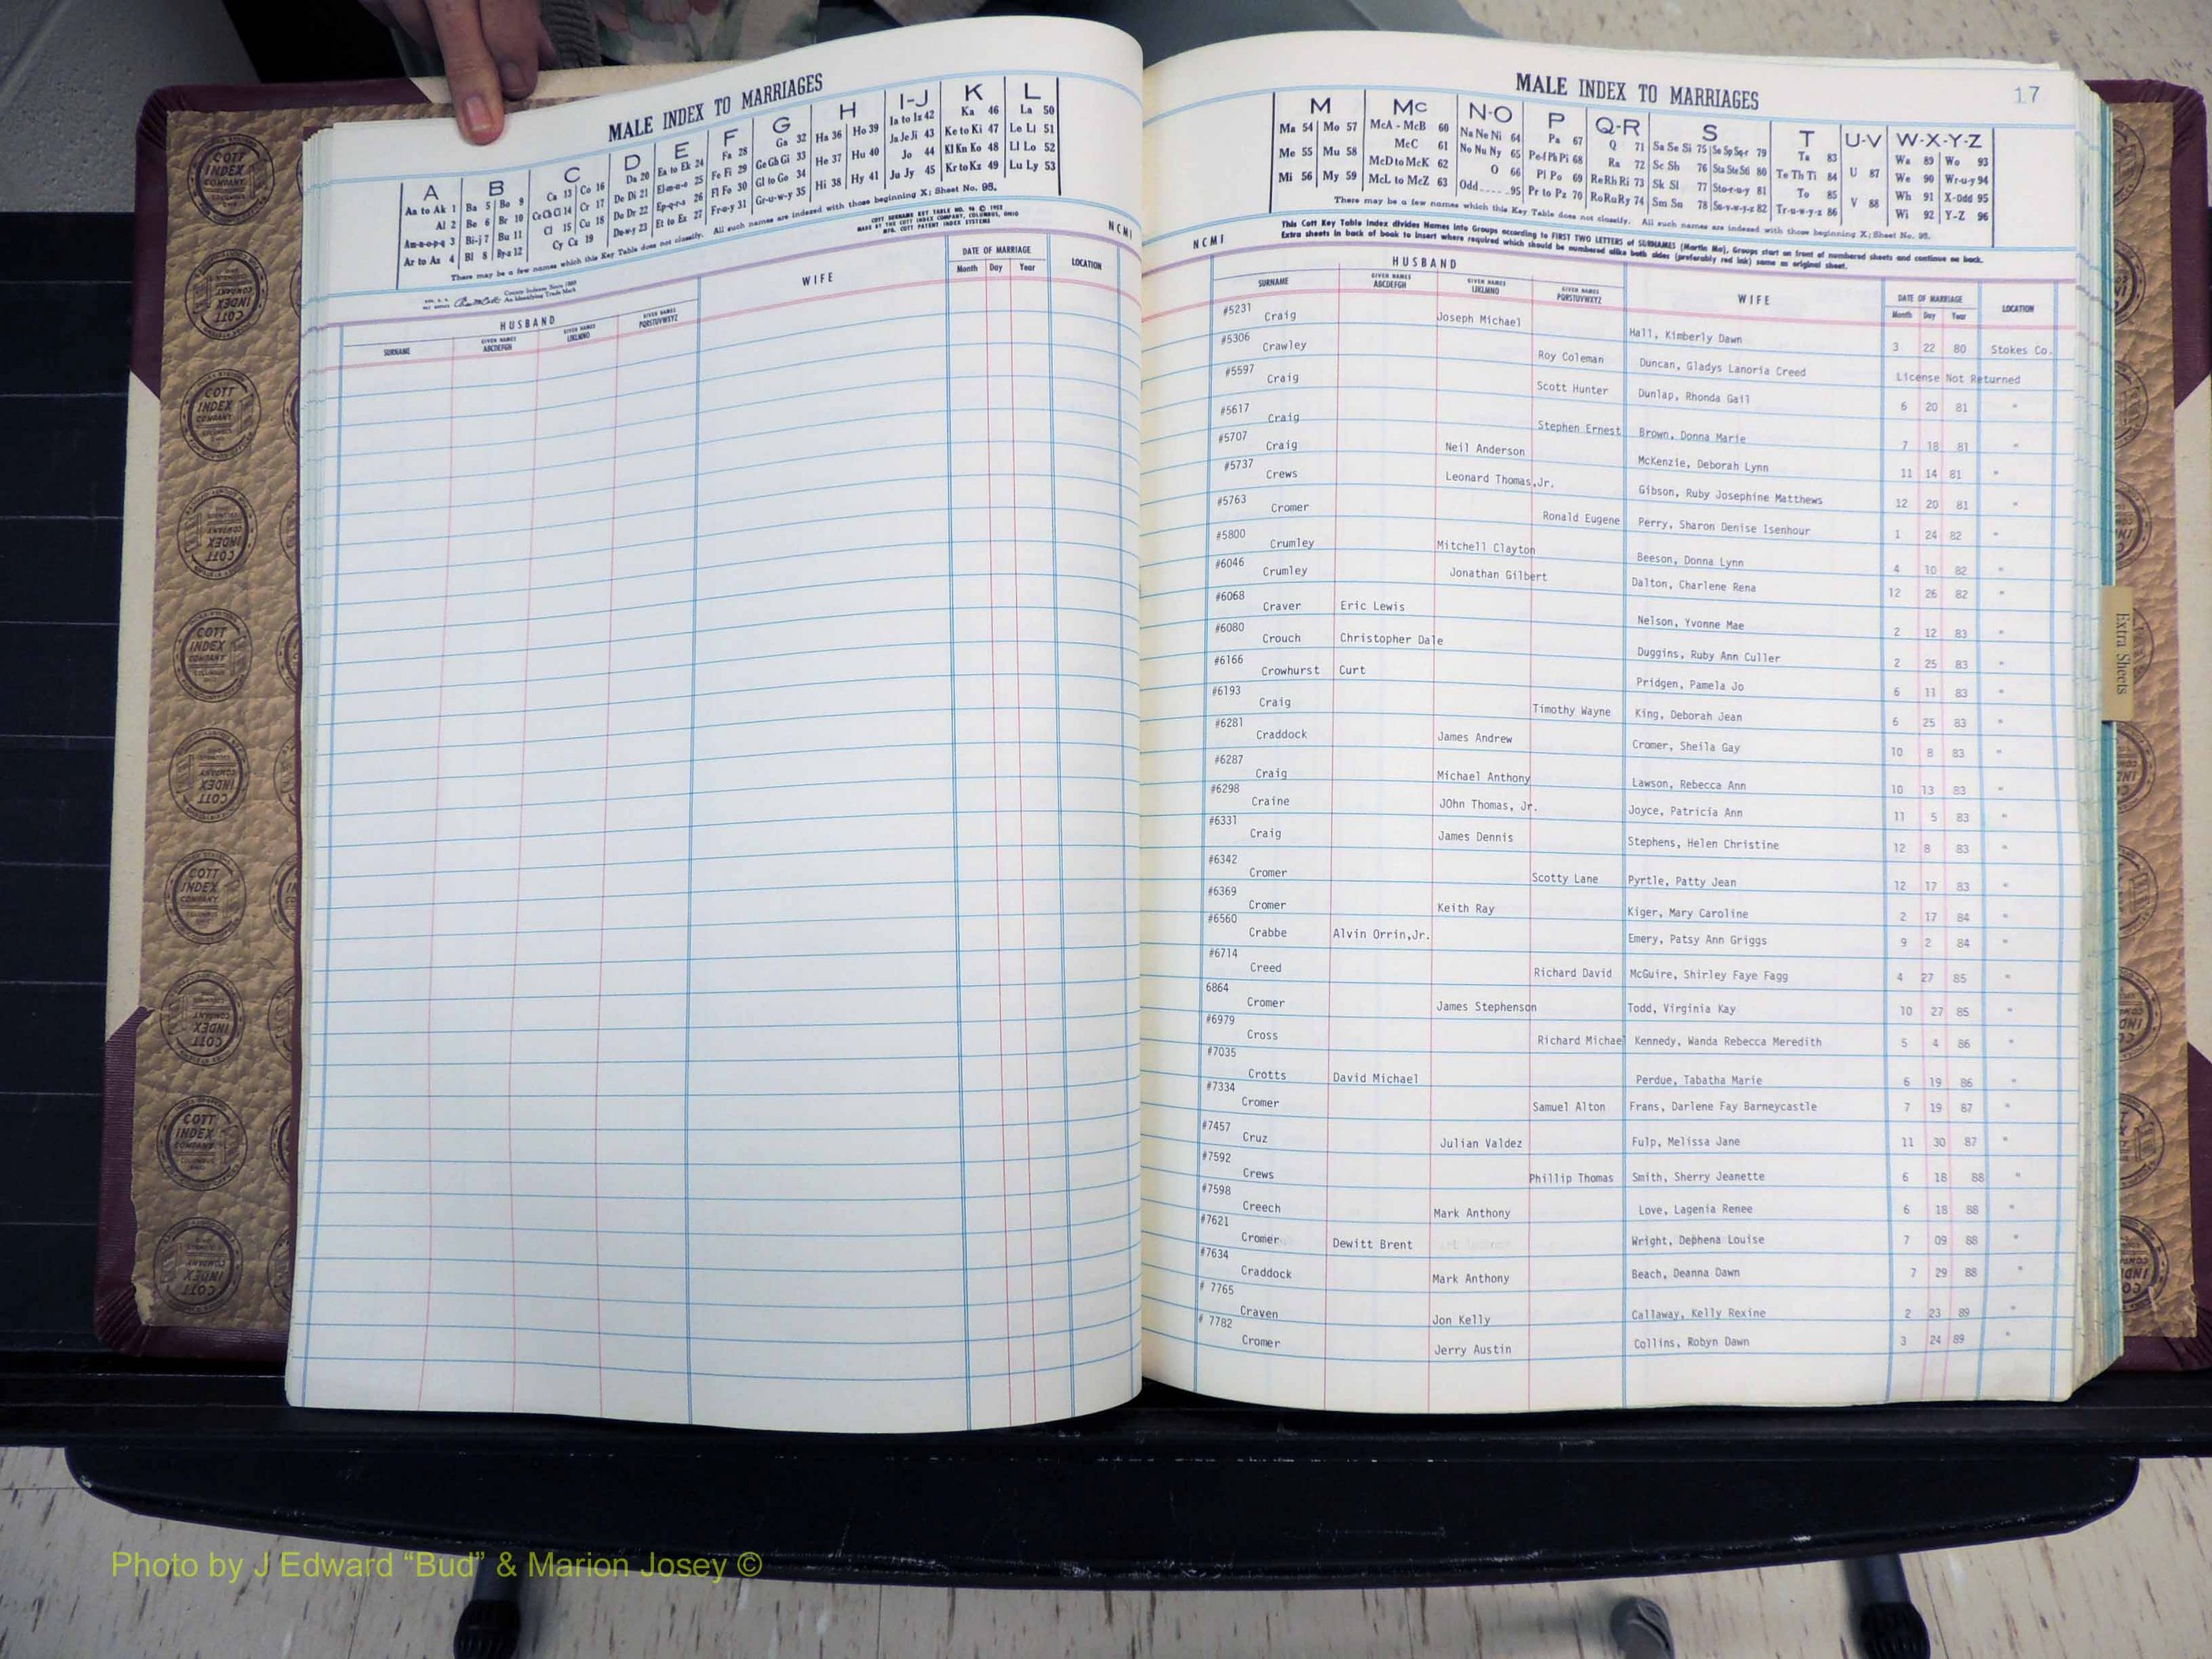 MALE INDEX TO MARRIAGES
A B C D E F G H I-J K L
Aa to Ak 1 Ba 5 Bo 9 Ca 13 Co 16 Da 20 Ea to Ek 24 Fa 28 Ga 32 Ha 36 Ho 39 Ia to Iz 42 Ka 46 La 50
Al 2 Be 6 Br 10 Ce Ch Ci 14 Cr 17 De Di 21 El-m-n-o 25 Fe Fi 29 Ge Gh Gi 33 He 37 Hu 40 Ja Je Ji 43 Ke to Ki 47 Le Li 51
Am-n-o-p-q 3 Bi-j 7 Bu 11 Cl 15 Cu 18 Do Dr 22 Ep-q-r-s 26 Fl Fo 30 Gl to Go 34 Hi 38 Hy 41 Jo 44 Kl Kn Ko 48 Ll Lo 52
Ar to Az 4 Bl 8 By-z 12 Cy Cz 19 Du-w-y 23 Et to Ez 27 Fr-u-y 31 Gr-u-w-y 35 Ju Jy 45 Kr to Kz 49 Lu Ly 53
There may be a few names which this Key Table does not classify. All such names are indexed with those beginning X; Sheet No. 95.
COTT SURNAME KEY TABLE NO. 96 © 1953
MADE BY THE COTT INDEX COMPANY, COLUMBUS, OHIO
MFG. COTT PATENT INDEX SYSTEMS
NCMI
County Indexes Since 1888
An Identifying Trade Mark
HUSBAND WIFE DATE OF MARRIAGE LOCATION
SURNAME GIVEN NAMES ABCDEFGH GIVEN NAMES IJKLMNO GIVEN NAMES PQRSTUVWXYZ Month Day Year
MALE INDEX TO MARRIAGES 17
M Mc N-O P Q-R S T U-V W-X-Y-Z
Ma 54 Mo 57 McA - McB 60 Na Ne Ni 64 Pa 67 Q 71 Sa Se Si 75 Se Sp Sq-r 79 Ta 83 U 87 Wa 89 Wo 93
Me 55 Mu 58 McC 61 No Nu Ny 65 Pe-f Ph Pi 68 Ra 72 Sc Sh 76 Sta Ste Sti 80 Te Th Ti 84 V 88 We 90 Wr-u-y 94
Mi 56 My 59 McD to McK 62 O 66 Pl Po 69 Re Rh Ri 73 Sk Sl 77 Sto-r-u-y 81 To 85 Wh 91 X-Odd 95
McL to McZ 63 Odd 95 Pr to Pz 70 Ro Ru Ry 74 Sm Sn 78 Su-v-w-y-z 82 Tr-u-w-y-z 86 Wi 92 Y-Z 96
There may be a few names which this Key Table does not classify. All such names are indexed with those beginning X; Sheet No. 95.
NCMI
This Cott Key Table Index divides Names into Groups according to FIRST TWO LETTERS of SURNAMES (Martin Ma), Groups start on front of numbered sheets and continue on back.
Extra sheets in back of book to insert where required which should be numbered alike both sides (preferably red ink) same as original sheet.
HUSBAND WIFE DATE OF MARRIAGE LOCATION
SURNAME GIVEN NAMES ABCDEFGH GIVEN NAMES IJKLMNO GIVEN NAMES PQRSTUVWXYZ Month Day Year
#5231 Craig Joseph Michael Hall, Kimberly Dawn 3 22 80 Stokes Co.
#5306 Crawley Roy Coleman Duncan, Gladys Lanoria Creed License Not Returned
#5597 Craig Scott Hunter Dunlap, Rhonda Gail 6 20 81 "
#5617 Craig Stephen Ernest Brown, Donna Marie 7 18 81 "
#5707 Craig Neil Anderson McKenzie, Deborah Lynn 11 14 81 "
#5737 Crews Leonard Thomas,Jr. Gibson, Ruby Josephine Matthews 12 20 81 "
#5763 Cromer Ronald Eugene Perry, Sharon Denise Isenhour 1 24 82 "
#5800 Crumley Mitchell Clayton Beeson, Donna Lynn 4 10 82 "
#6046 Crumley Jonathan Gilbert Dalton, Charlene Rena 12 26 82 "
#6068 Craver Eric Lewis Nelson, Yvonne Mae 2 12 83 "
#6080 Crouch Christopher Dale Duggins, Ruby Ann Culler 2 25 83 "
#6166 Crowhurst Curt Pridgen, Pamela Jo 6 11 83 "
#6193 Craig Timothy Wayne King, Deborah Jean 6 25 83 "
#6281 Craddock James Andrew Cromer, Sheila Gay 10 8 83 "
#6287 Craig Michael Anthony Lawson, Rebecca Ann 10 13 83 "
#6298 Craine JOhn Thomas, Jr. Joyce, Patricia Ann 11 5 83 "
#6331 Craig James Dennis Stephens, Helen Christine 12 8 83 "
#6342 Cromer Scotty Lane Pyrtle, Patty Jean 12 17 83 "
#6369 Cromer Keith Ray Kiger, Mary Caroline 2 17 84 "
#6560 Crabbe Alvin Orrin,Jr. Emery, Patsy Ann Griggs 9 2 84 "
#6714 Creed Richard David McGuire, Shirley Faye Fagg 4 27 85 "
6864 Cromer James Stephenson Todd, Virginia Kay 10 27 85 "
#6979 Cross Richard Michael Kennedy, Wanda Rebecca Meredith 5 4 86 "
#7035 Crotts David Michael Perdue, Tabatha Marie 6 19 86 "
#7334 Cromer Samuel Alton Frans, Darlene Fay Barneycastle 7 19 87 "
#7457 Cruz Julian Valdez Fulp, Melissa Jane 11 30 87 "
#7592 Crews Phillip Thomas Smith, Sherry Jeanette 6 18 88 "
#7598 Creech Mark Anthony Love, Lagenia Renee 6 18 88 "
#7621 Cromer Dewitt Brent Wright, Dephena Louise 7 09 88 "
#7634 Craddock Mark Anthony Beach, Deanna Dawn 7 29 88 "
# 7765 Craven Jon Kelly Callaway, Kelly Rexine 2 23 89 "
# 7782 Cromer Jerry Austin Collins, Robyn Dawn 3 24 89 "
Extra Sheets
COTT INDEX COMPANY
Photo by J Edward “Bud” & Marion Josey ©